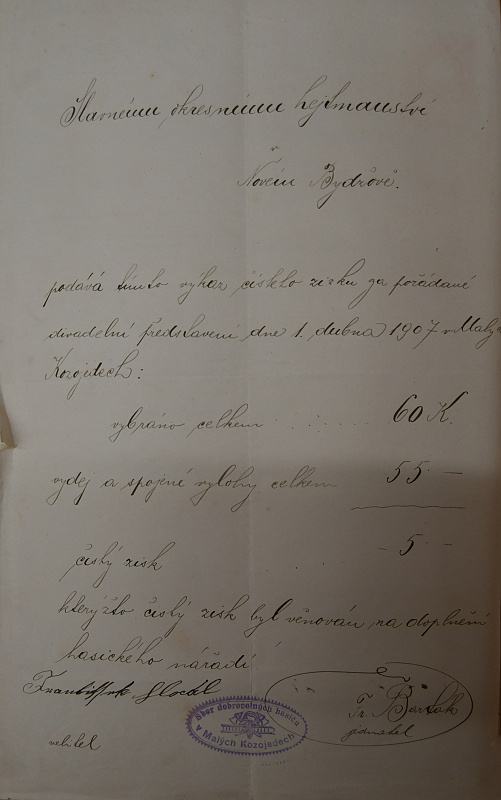 Slavnému okresnímu hejtmanství
v
Novém Bydžově.
podává tímto výkaz čistého zisku za pořádané
divadelní představení dne 1. dubna 1907 v Malých
Kozojdech:
vybráno celkem . . . . . . 60 K.
vydej a spojené výlohy celkem 55 —
čistý zisk . . . - 5 —
kterýžto čistý zisk byl věnován na doplnění
hasického nářadí
František
velitel
Sbor dobrovolných hasičů
v Malých Kozojedech
Fr. Barták
jednatel